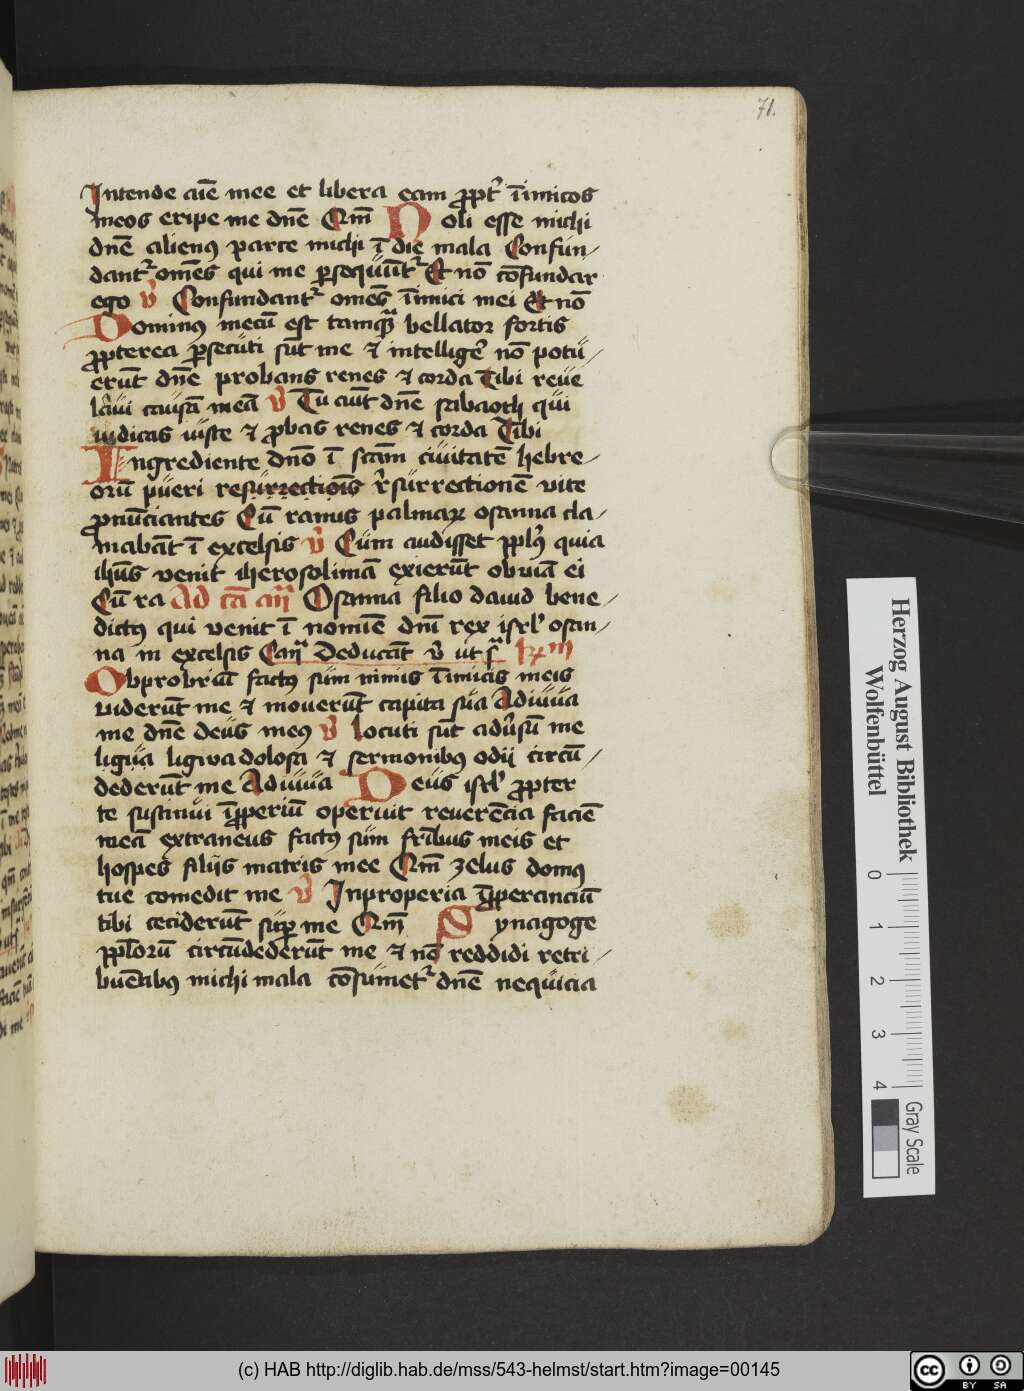 71.
Intende aīe mee et libera eam ꝓpt᷑ īimicos
meos eripe me dn̄e Qm̄ Noli esse michi
dn̄e alienꝰ parce michi ī die mala Confun-
dant᷑ om̄es qui me ꝑsequūt᷑ Et nō cōfundar
ego v̄ Confundant᷑ omēs īimici mei Et nō
Dominꝰ mecū est tamqᷓ bellator fortis
ꝓpterea ꝑsecuti sūt me ⁊ intelligē nō potu-
erūt dn̄e probans renes ⁊ corda Tibi reue
laui causā meā v̄ Tu aūt dn̄e sabaoth qui
iudicas iuste ⁊ ꝓbas renes ⁊ corda Tibi
Ingrediente dn̄o ī scām ciuitatē hebre-
orū pueri resurrectiōis r̄surrectionē vite
ꝓnūciantes Cū ramis palmaꝝ osanna cla-
mabāt ī excelsis v̄ Cum audisset ppl̄s quia
ihūs venit iherosolimā exierūt obuiā ei
Cū ra Ad cā an̄ Osanna filio dauid bene-
dictꝰ qui venit ī nomīe dn̄i rex isrl̄ osan-
na in excelsis Caᷓ Deducāt v̄ ut sᷓ
Obprobriū factꝰ sum nimis īimicis meis
viderūt me ⁊ mouerūt capita sua Adiuua
me dn̄e deus meꝰ v̄ Locuti sūt aduſ̄um me
ligua ligwa dolosa ⁊ sermonibꝰ odii circū-
dederūt me Adiuua Deus isrl̄ ꝓpter
te sustinui īꝓperiū operuit reuerēcia faciē
meā extraneus factꝰ sum fr̄ibus meis et
hospes filijs matris mee Qm̄ zelus domꝰ
tue comedit me v̄ Inproperia īꝓperanciū
tibi ceciderūt suꝑ me Qm̄ Synagoge
ppl̄orū circūdederūt me ⁊ nō reddidi retri-
buētibꝰ michi mala cōsumet᷑ dn̄e nequicia
Herzog August Bibliothek
Wolfenbüttel
0 1 2 3 4
Gray Scale
(c) HAB http://diglib.hab.de/mss/543-helmst/start.htm?image=00145
cc BY SA